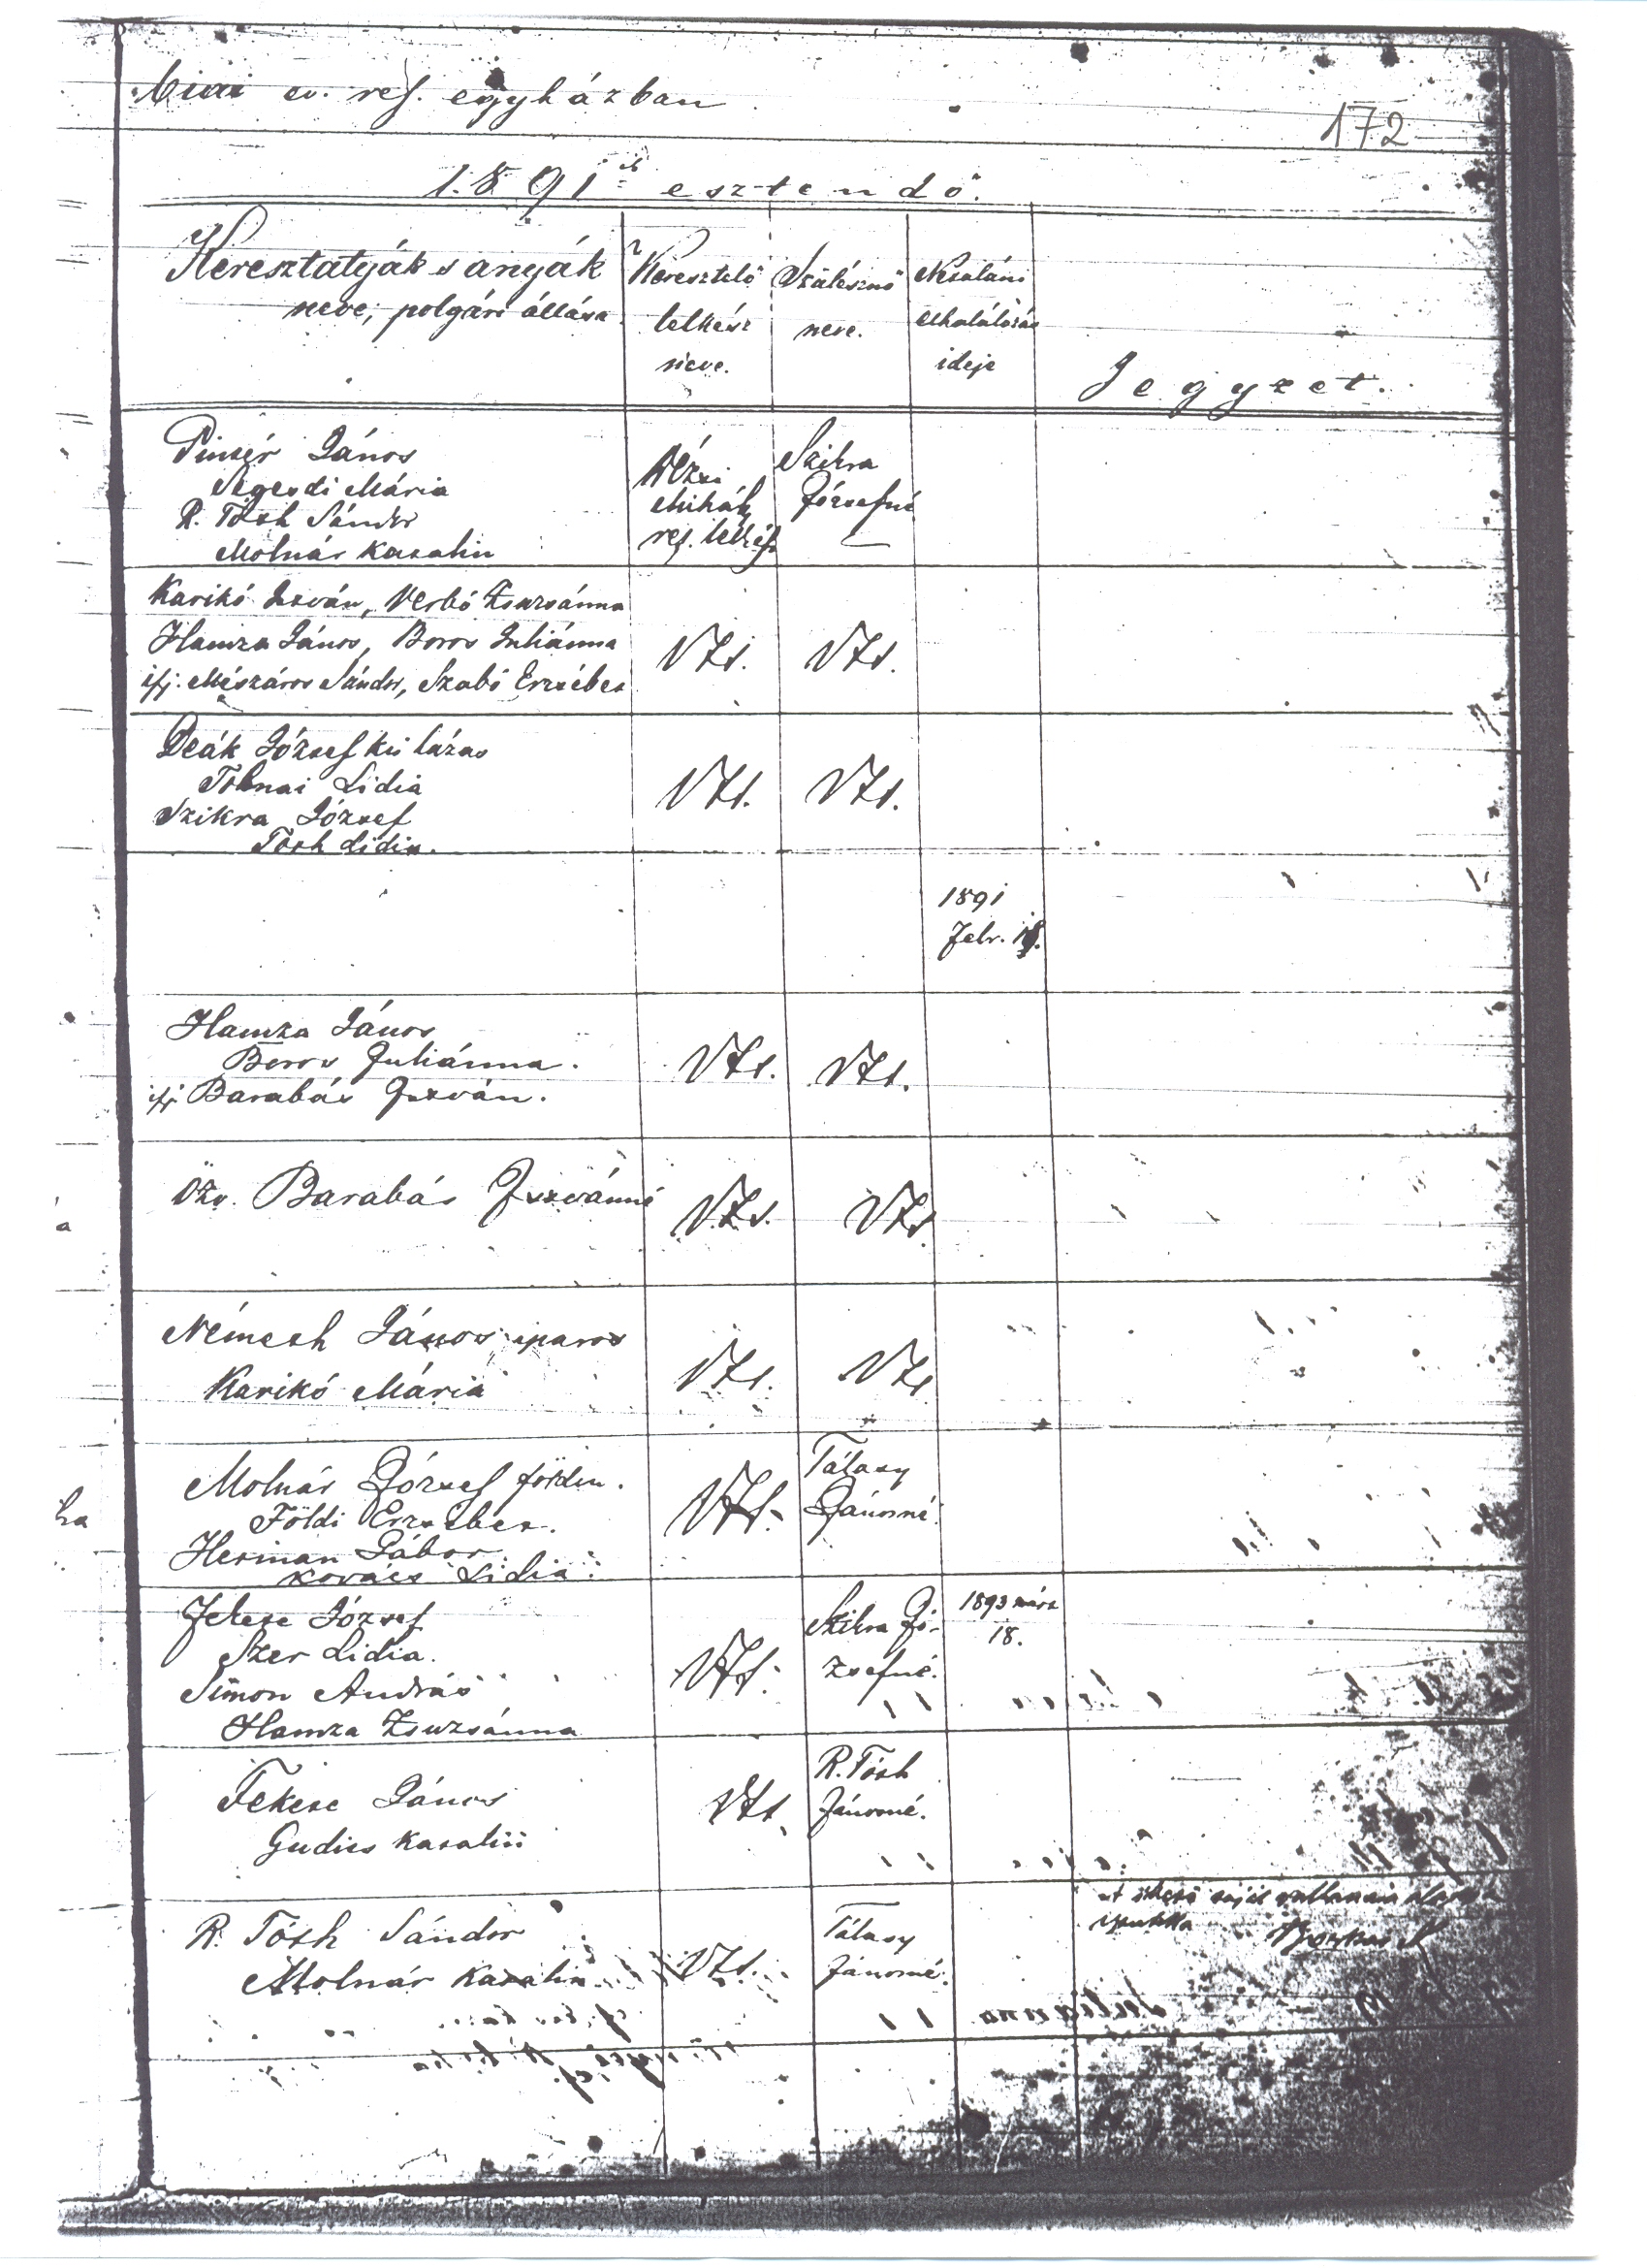 ev. ref. egyházban
172
1891ik esztendő.
Keresztatyák s anyák
neve, polgári állása
Keresztelő
lelkész
neve.
Szülésznő
neve.
Netaláni
elhalálozás
ideje
Jegyzet.
Pintér János
Segesdi Mária
R. Tóth Sándor
Molnár Katalin
Mihály
ref. lelkész
Szikra
Józsefné
Karikó István, Verbó Zsuzsánna
Hamza János, Boros Juliánna
ifj. Mészáros Sándor, Szabó Erzsébet
Deák József kis lázas
Tolnai Lidia
Szikra József
Tóth Lidia.
1891
Febr.
Hamza János
Boros Juliánna.
ifj. Barabás István.
Özv. Barabás Istvánné
Németh János iparos
Karikó Mária
Molnár József földm.
Földi Erzsébet.
Herman Gábor
Kovács Lidia
Tálasy
Jánosné.
Fekete József
Szer Lidia.
Simon András
Hamza Zsuzsánna
Szikra Jó-
zsefné.
1893 márt
18.
Fekete János
Gudics Katalin
R. Tóth
Jánosné.
R. Tóth Sándor
Molnár Katalin
Tálasy
Jánosné.